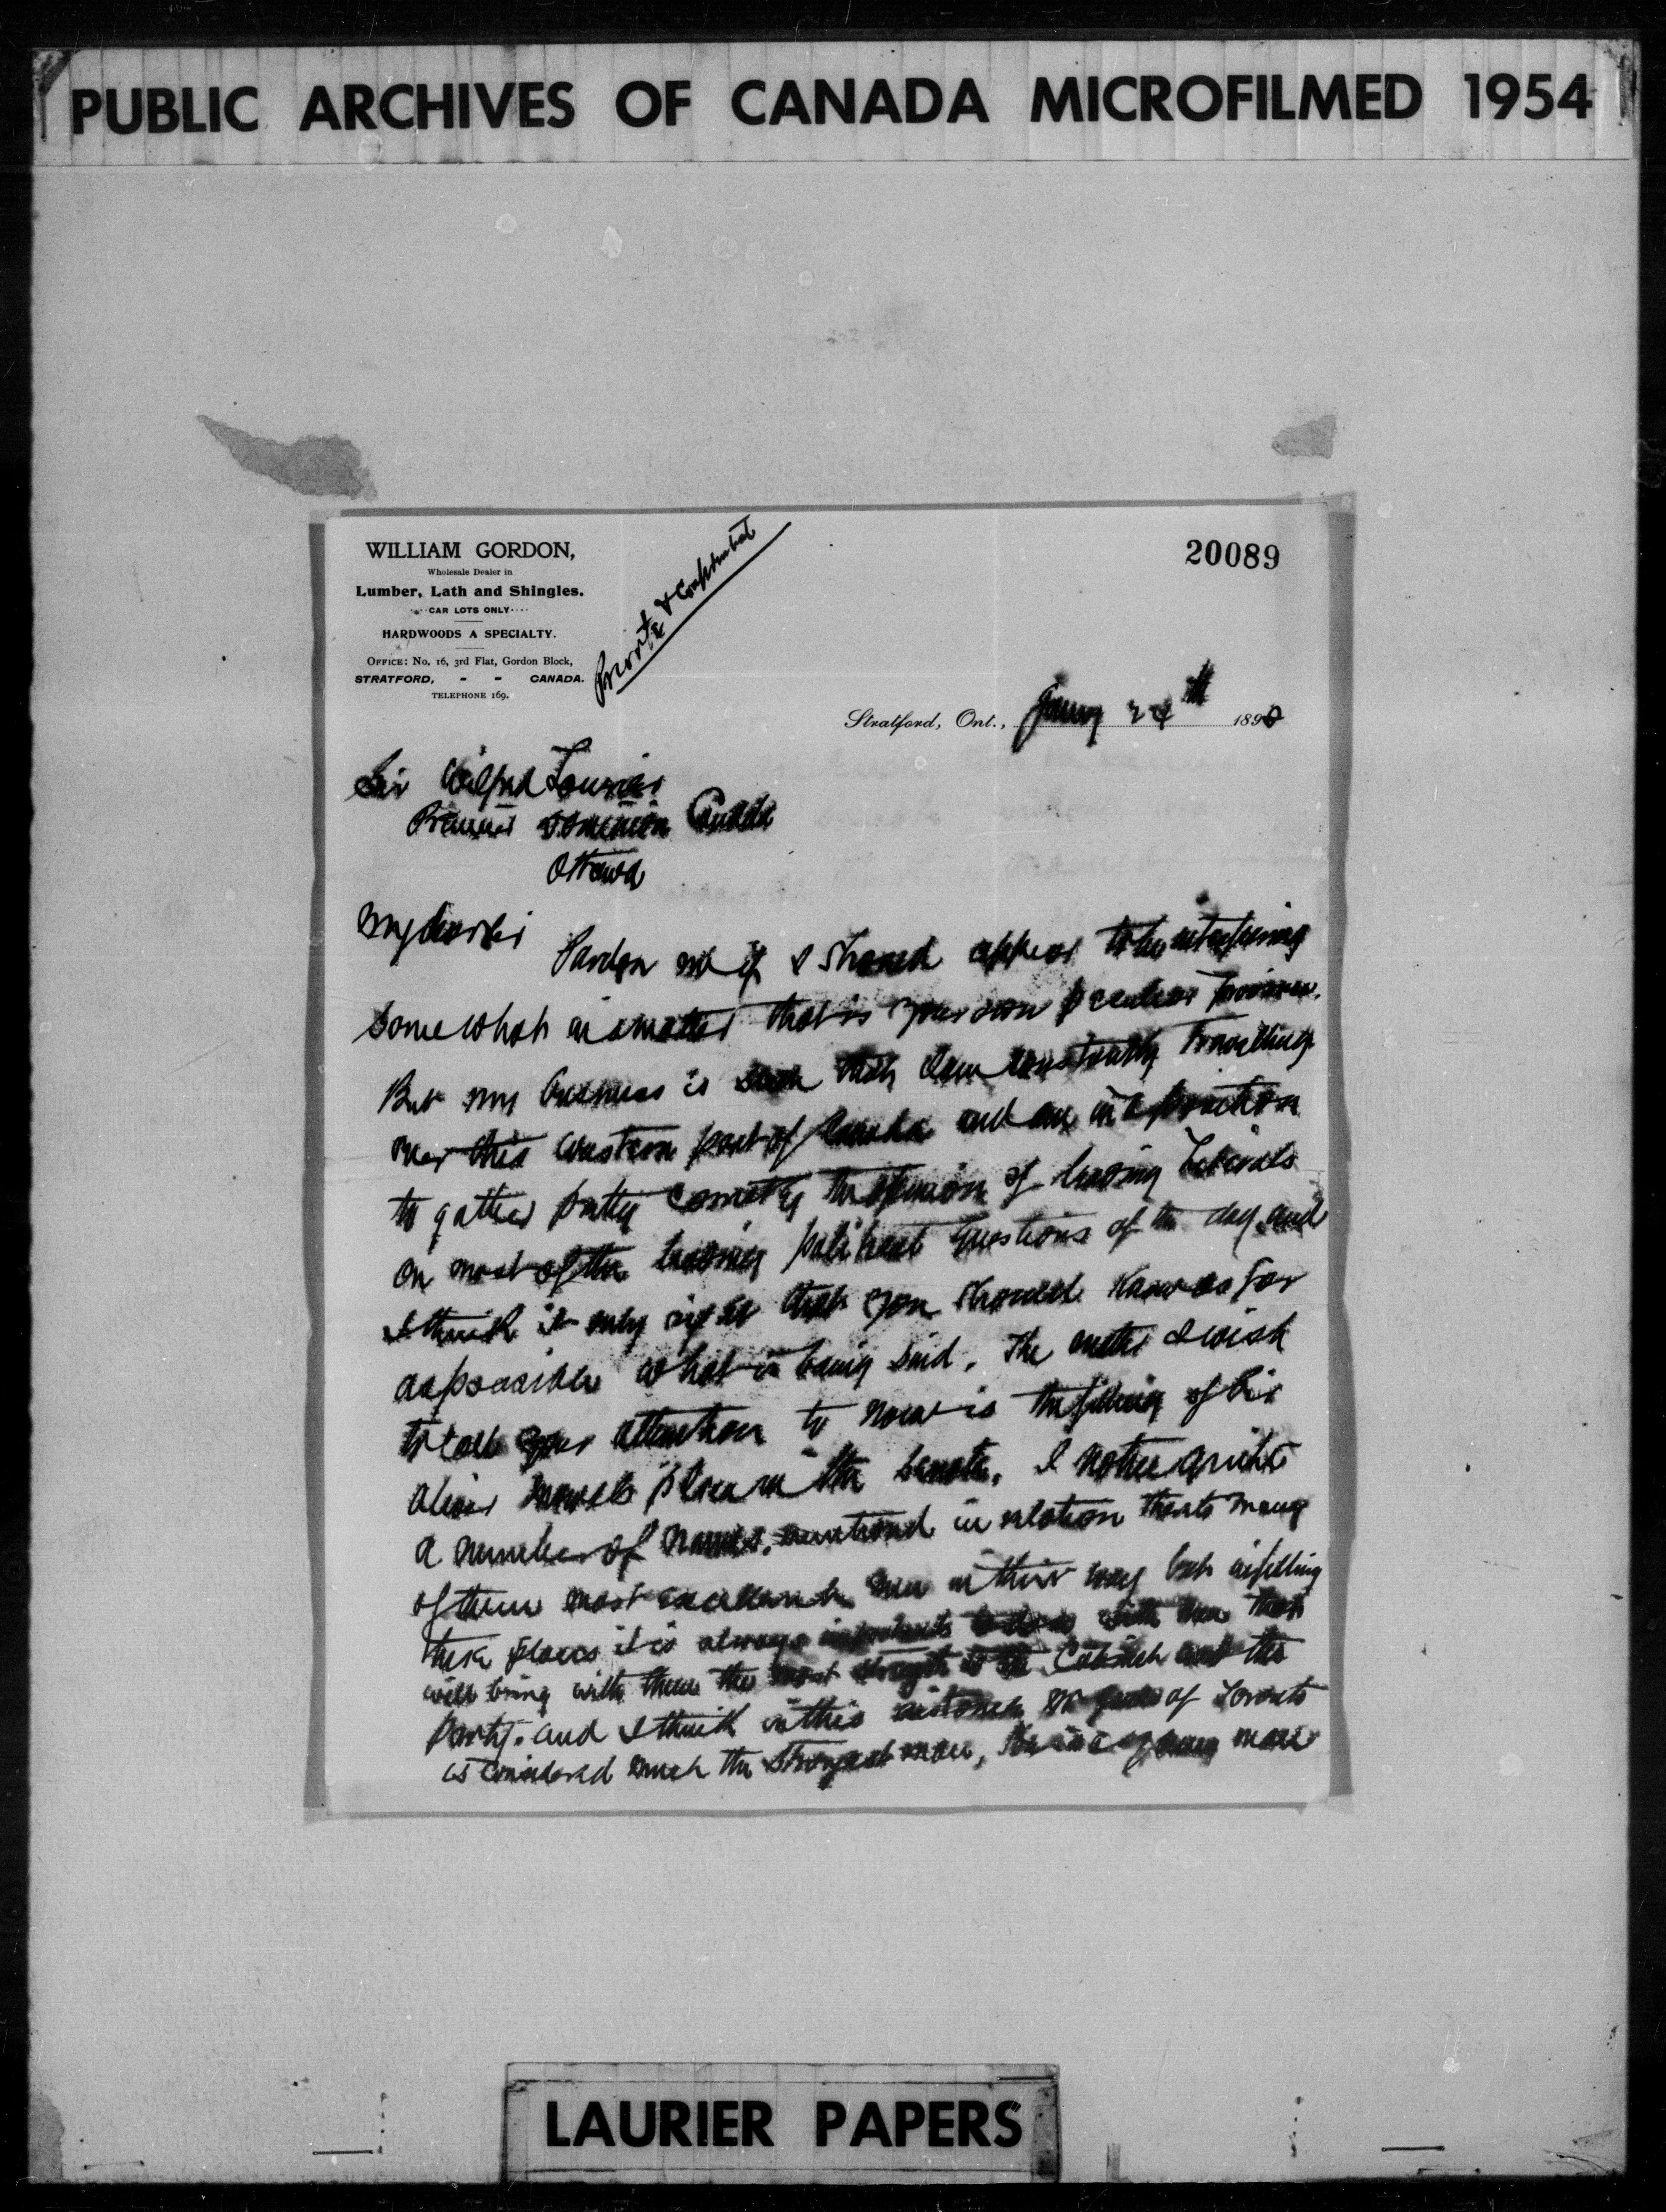 PUBLIC ARCHIVES OF CANADA MICROFILMED 1954
WILLIAM GORDON,
Wholesale Dealer in
Lumber, Lath and Shingles.
CAR LOTS ONLY
HARDWOODS A SPECIALTY.
OFFICE: No. 16, 3rd Flat, Gordon Block,
STRATFORD, - - CANADA.
TELEPHONE 169.
Private & Confidential
20089
Stratford, Ont., January 24th 189
Sir Wilfred Laurier
Premier Dominion Canada
Ottawa
My dear Sir
Pardon me if I should appear to be interfering
somewhat in a matter that is your own peculiar province.
But my business is such that I am constantly travelling
over this western part of Canada and am in a position
to gather pretty correctly the opinion of leading Liberals
on most of the leading political questions of the day and
I think it only right that you should know as far
as possible what is being said. The matter I wish
to call your attention to now is the filling of Sir
Oliver Mowats place in the Senate. I notice quite
a number of names mentioned in relation thereto many
of them most excellent men in their way but in filling
these places it is always important to men that
will bring with them the most strength to the Cabinet and the
Party. and I think in this of Toronto
is considered much the strongest man, he is a young man
LAURIER PAPERS